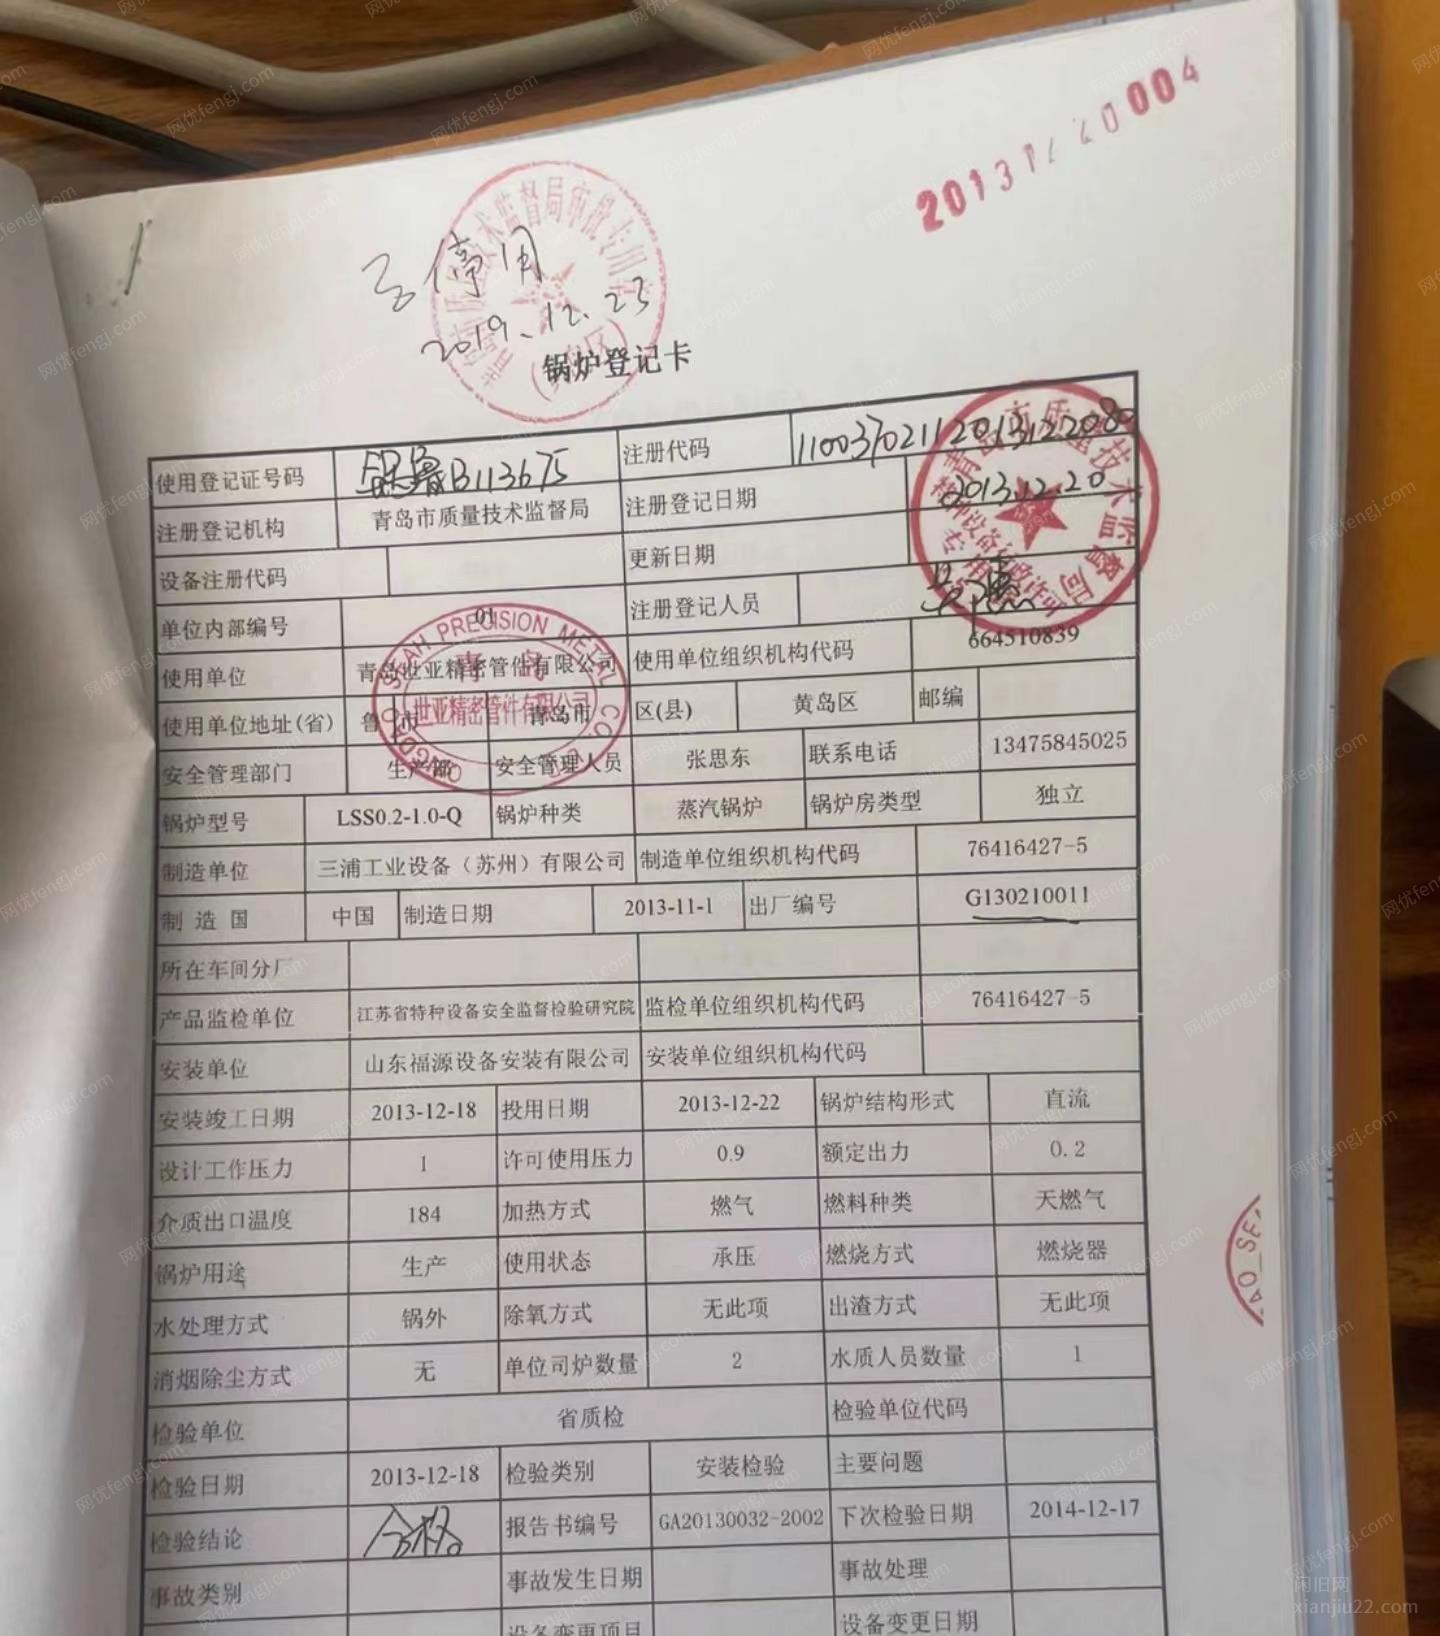 20131220004
停用
2019.12.23
锅炉登记卡
使用登记证号码 锅鲁B113675 注册代码 11003702112013122080
注册登记机构 青岛市质量技术监督局 注册登记日期 2013.12.20
设备注册代码 更新日期
单位内部编号 01 注册登记人员
使用单位 青岛世亚精密管件有限公司 使用单位组织机构代码 664510839
使用单位地址(省) 鲁 市 青岛市 区(县) 黄岛区 邮编
安全管理部门 生产部 安全管理人员 张思东 联系电话 13475845025
锅炉型号 LSS0.2-1.0-Q 锅炉种类 蒸汽锅炉 锅炉房类型 独立
制造单位 三浦工业设备（苏州）有限公司 制造单位组织机构代码 76416427-5
制造国 中国 制造日期 2013-11-1 出厂编号 G130210011
所在车间分厂
产品监检单位 江苏省特种设备安全监督检验研究院 监检单位组织机构代码 76416427-5
安装单位 山东福源设备安装有限公司 安装单位组织机构代码
安装竣工日期 2013-12-18 投用日期 2013-12-22 锅炉结构形式 直流
设计工作压力 1 许可使用压力 0.9 额定出力 0.2
介质出口温度 184 加热方式 燃气 燃料种类 天燃气
锅炉用途 生产 使用状态 承压 燃烧方式 燃烧器
水处理方式 锅外 除氧方式 无此项 出渣方式 无此项
消烟除尘方式 无 单位司炉数量 2 水质人员数量 1
检验单位 省质检 检验单位代码
检验日期 2013-12-18 检验类别 安装检验 主要问题
检验结论 合格 报告书编号 GA20130032-2002 下次检验日期 2014-12-17
事故类别 事故发生日期 事故处理
设备变更项目 设备变更日期
青岛市质量技术监督局
特种设备行政许可
专用章
SEAH PRECISION METAL CO.
青岛
世亚精密管件有限公司
闲旧网
xianjiu22.com
网优fengj.com